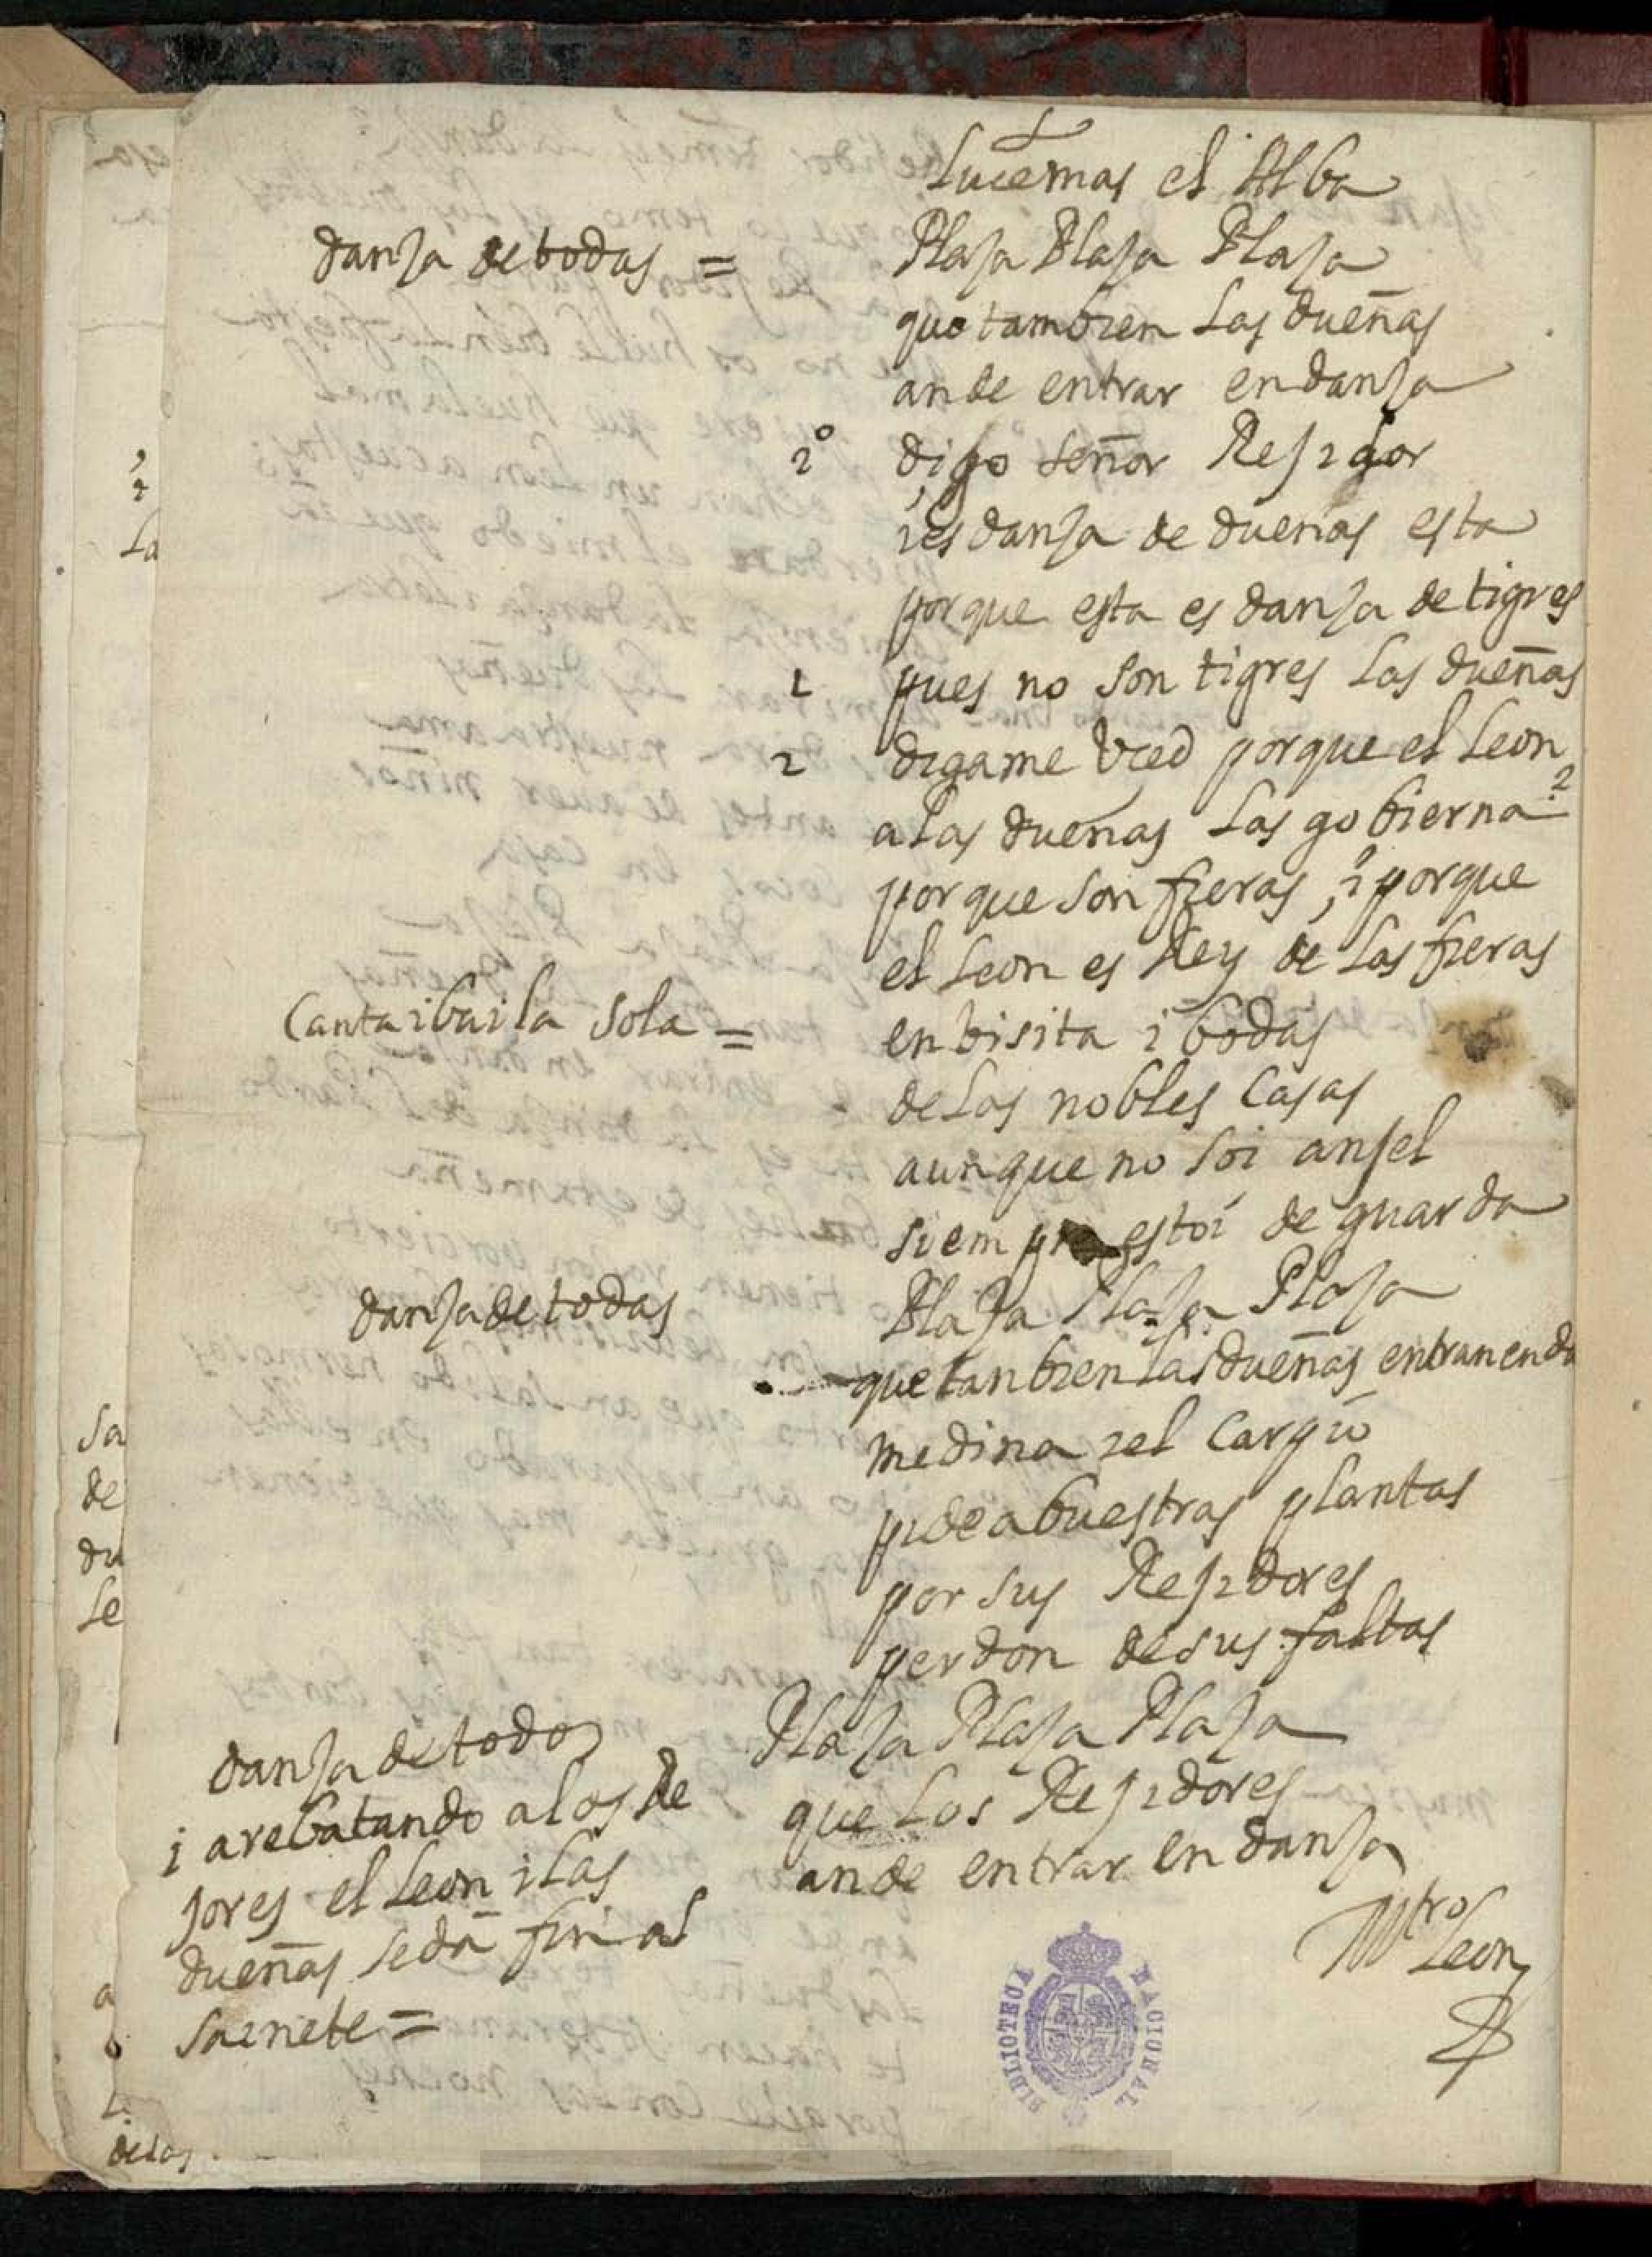 Lucemas el Alba
danza de todas = Plaza Plaza Plaza
que tambien las dueñas
an de entrar en danza
2º digo señor Rejidor
ies danza de dueñas esta
porque esta es danza de tigres
1 pues no son tigres las dueñas
2 digame Vced porque el leon
a las dueñas las gobierna?
porque son fieras, i porque
el leon es Rey de las fieras
Canta i baila sola = en bisita i bodas
de las nobles Casas
aunque no soi anjel
siempre estoi de guarda
danza de todas Plaza Plaza Plaza
que tanbien las dueñas entran en da
medina i el Carpio
pide a buestras plantas
por sus Rejidores
perdon de sus faltas
danza de todos Plaza Plaza Plaza
i arebatando a los Re que los Rejidores
jores el leon i las an de entrar en danza
dueñas se dã fin al
sainete =
Mtro Leon
BIBLIOTECA NACIONAL
La
Sa
de
du
Le
a
de las